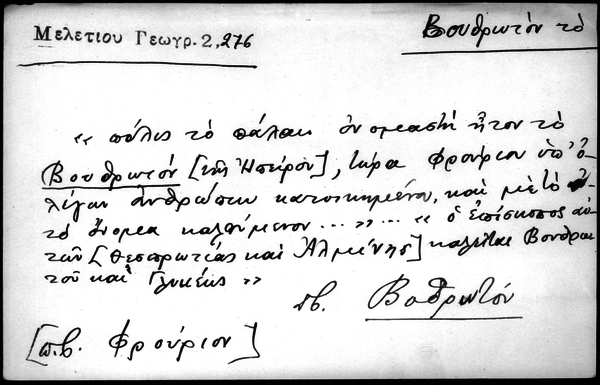 Μελετίου Γεωγρ. 2, 276
Βουθρωτὸν τὸ
« πόλις τὸ πάλαι ὀνομαστὴ ἦτον τὸ
Βουθρωτόν [τῆς Ἠπείρου], τώρα φρούριον ὑπ' ὀ-
λίγων ἀνθρώπων κατοικημένον, καὶ μὲ τὸ
τὸ ὄνομα καλούμενον ...» ... « ὁ ἐπίσκοπος αὐ-
τῶν [Θεσπρωτίας καὶ Ἀλμήνης] καλεῖται Βουθρω-
τοῦ καὶ Γλυκέως »
Βοθρωτόν
[π.β. Φρούριον]